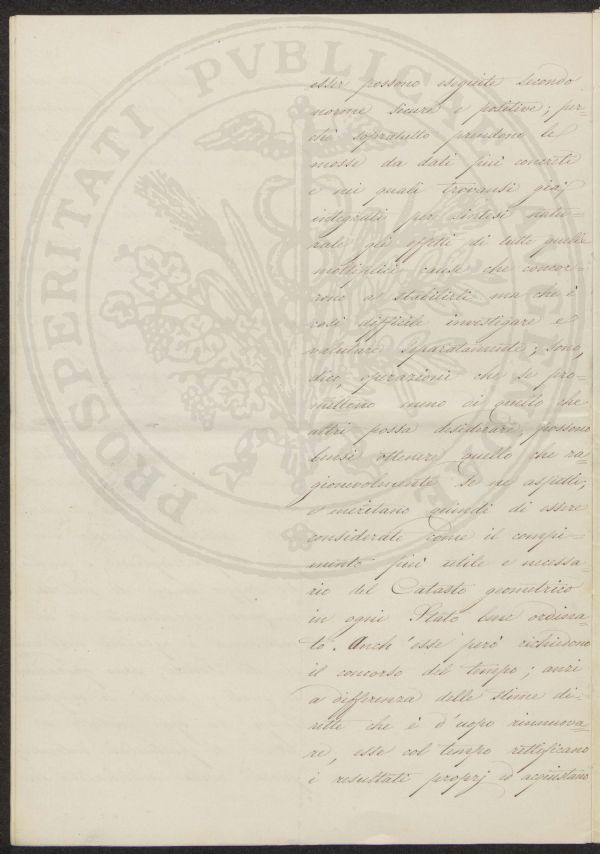 PROSPERITATI PVBLICAE
esser possono eseguite secondo
norme sicure e positive; per=
chè sopratutto prendono le
mosse da dati più concreti
e nei quali trovansi già
integrati per sintesi natu=
rale gli effetti di tutte quelle
moltiplici cause che concor=
rono a stabilirli ma che è
così difficile investigare e
valutare separatamente; sono,
dico, operazioni che se pro=
mettono meno di quello che
altri possa desiderare, possono
bensì ottenere quello che ra=
gionevolmente se ne aspetta;
e meritano quindi di essere
considerate come il compi=
mento più utile e necessa=
rio del Catasto geometrico
in ogni Stato bene ordina=
to. Anch'esse però richiedono
il concorso del tempo; anzi
a differenza delle stime di=
rette che è d'uopo rinnova=
re, esse col tempo rettificano
i resultati proprj ed acquistano